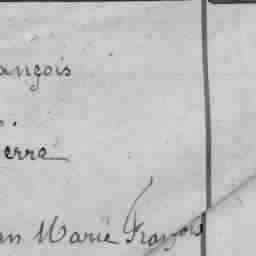 ançois
erre
an Marie François